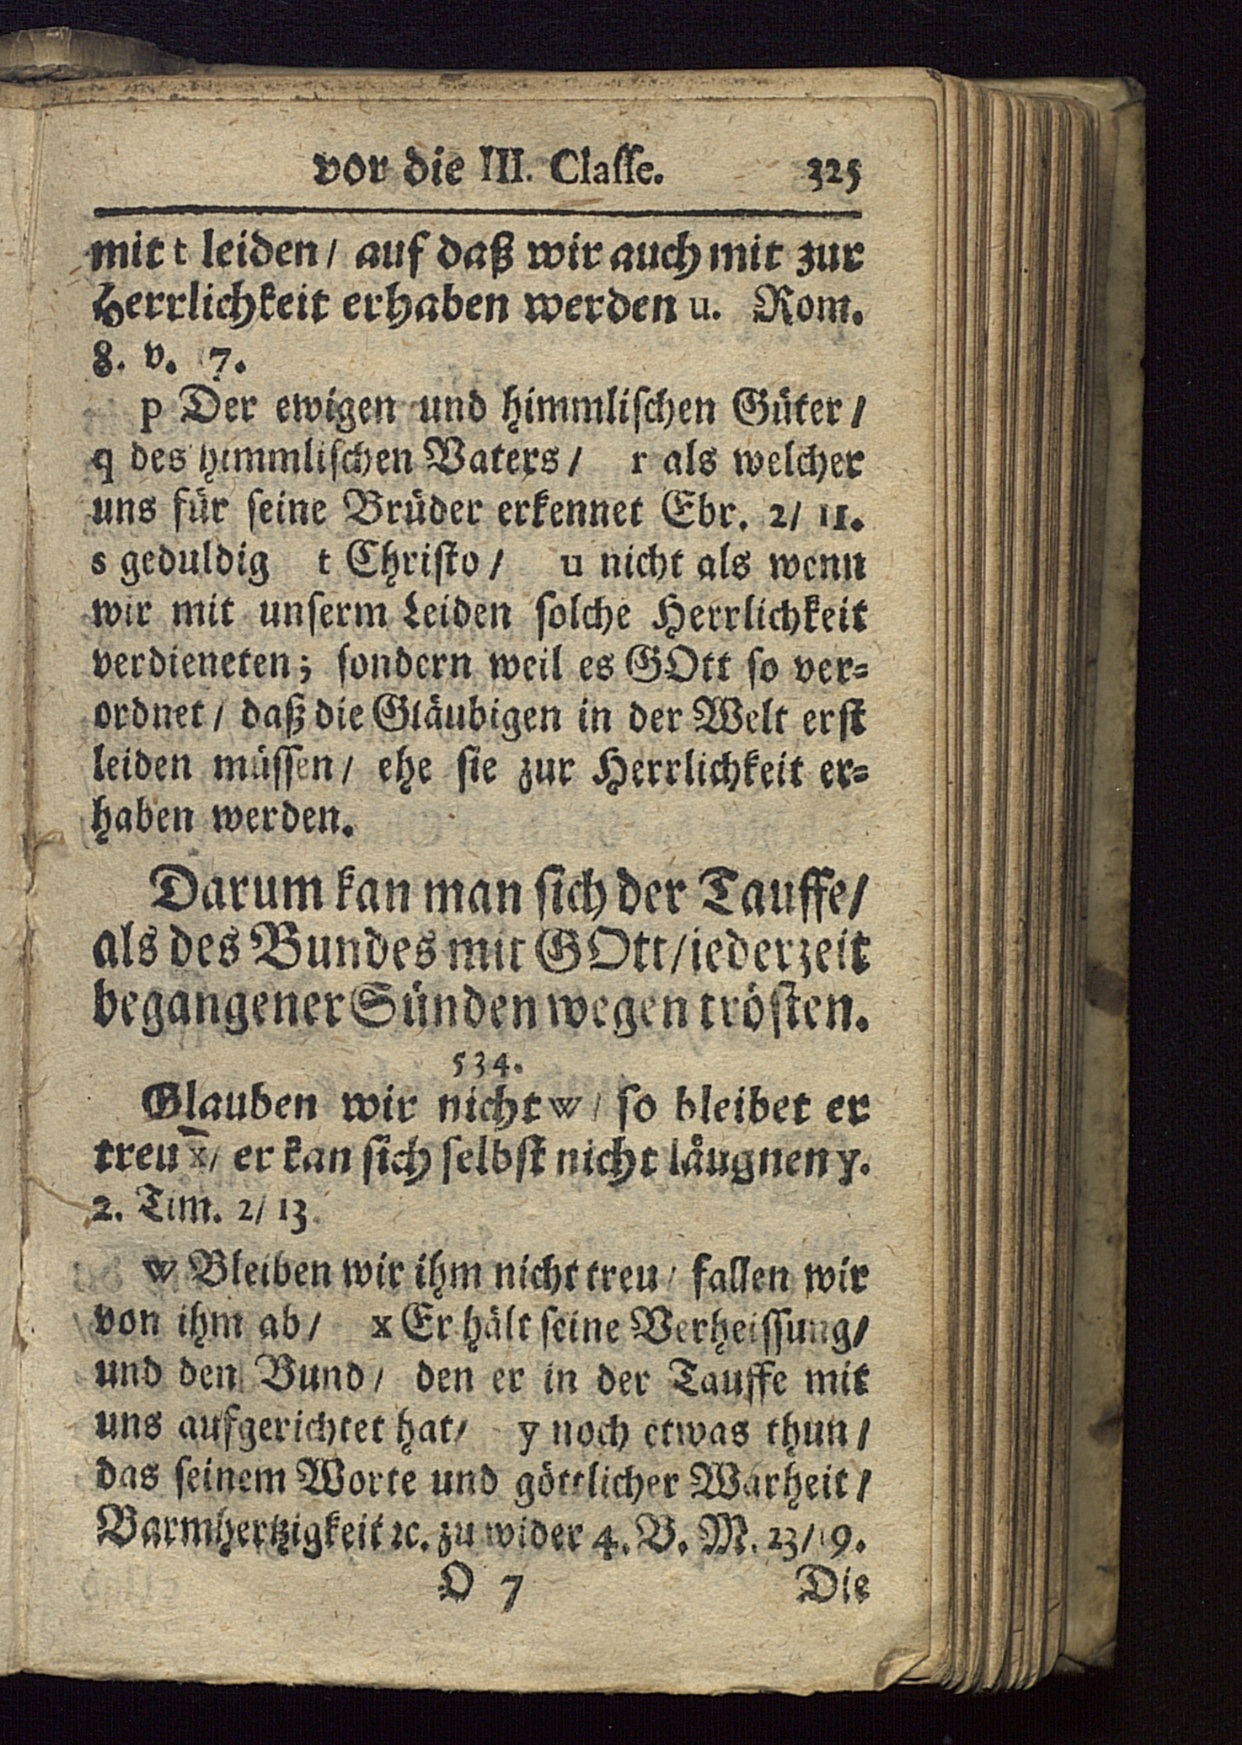 vor die III. Classe. 325
mit t leiden / auf daß wir auch mit zur
Herrlichkeit erhaben werden u. Rom.
8. v. 7.
p Der ewigen und himmlischen Güter /
q des himmlischen Vaters / r als welcher
uns für seine Brüder erkennet Ebr. 2/ 11.
s geduldig t Christo / u nicht als wenn
wir mit unserm Leiden solche Herrlichkeit
verdieneten; sondern weil es GOtt so ver=
ordnet / daß die Gläubigen in der Welt erst
leiden müssen / ehe sie zur Herrlichkeit er=
haben werden.
Darum kan man sich der Tauffe /
als des Bundes mit GOtt / iederzeit
begangener Sünden wegen trösten.
534.
Glauben wir nicht w / so bleibet er
treu x / er kan sich selbst nicht läugnen y.
2. Tim. 2/ 13.
w Bleiben wir ihm nicht treu / fallen wir
von ihm ab / x Er hält seine Verheissung /
und den Bund / den er in der Tauffe mit
uns aufgerichtet hat / y noch etwas thun /
das seinem Worte und göttlicher Warheit /
Barmhertzigkeit ꝛc. zu wider 4. B. M. 23/ 19.
O 7 Die